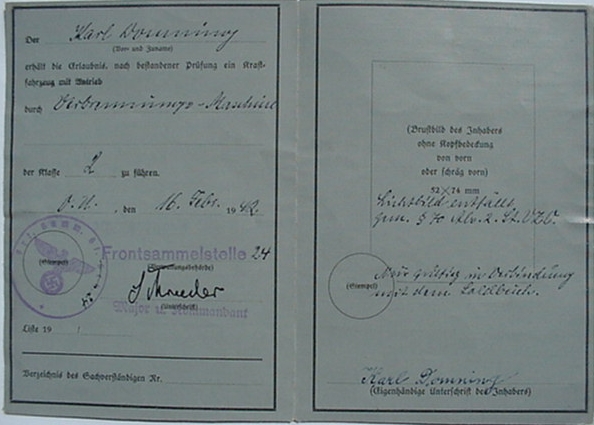 Der Karl Domning
(Vor- und Zuname)
erhält die Erlaubnis, nach bestandener Prüfung ein Kraft-
fahrzeug mit Antrieb
durch Verbrennungs-Maschine
der Klasse 2 zu führen.
O.U., den 16. Febr. 1942
Frontsammelstelle 24
(Stempel)
Major u. Kommandant
(Unterschrift)
Liste 19
Verzeichnis des Sachverständigen Nr.
(Brustbild des Inhabers
ohne Kopfbedeckung
von vorn
oder schräg vorn)
52×74 mm
Lichtbild entfällt
gem. § Abs. 2 St.V.Z.O.
Nur gültig in Verbindung
mit dem Soldbuch.
(Stempel)
Karl Domning
(Eigenhändige Unterschrift des Inhabers)